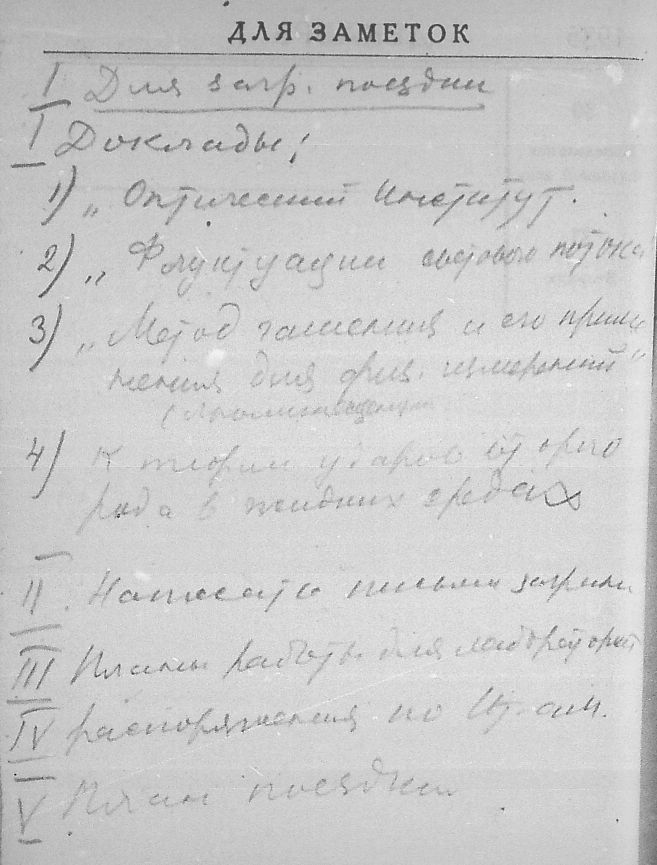 ДЛЯ ЗАМЕТОК
I Для загр. поездки
I Доклады:
1) „Оптический Институт.
2) „Флуктуации светового потока
3) „Метод гашения и его приме
нения для физ. измерений“
4) К теории ударов второго
рода в жидких средах
II. Написать письма
III Планы работы для лабораторий
IV распоряжения по
V План поездки